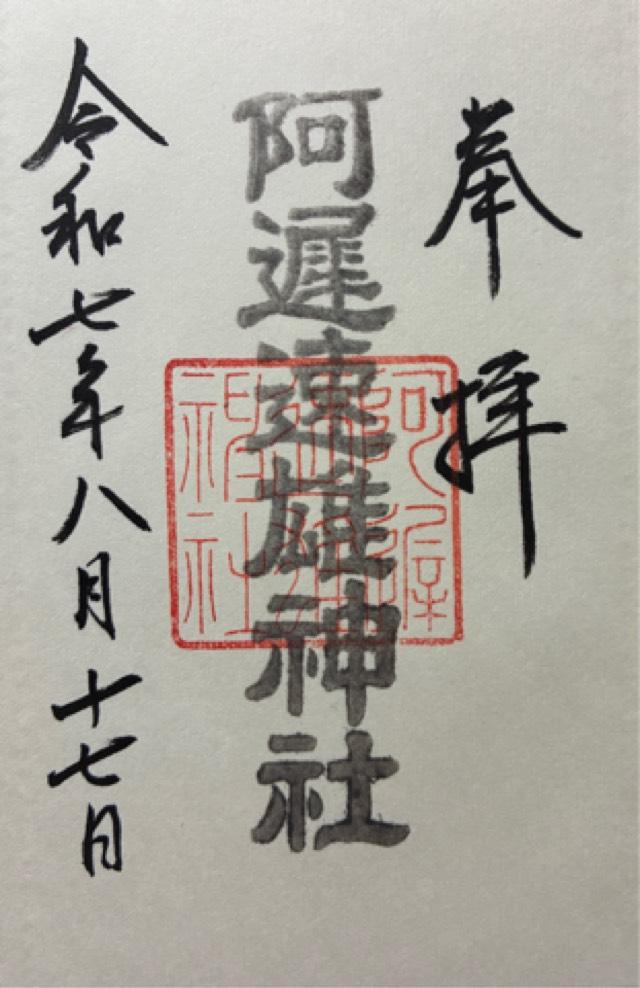 奉拝
阿遅速雄神社
阿遅速雄神社
令和七年八月十七日